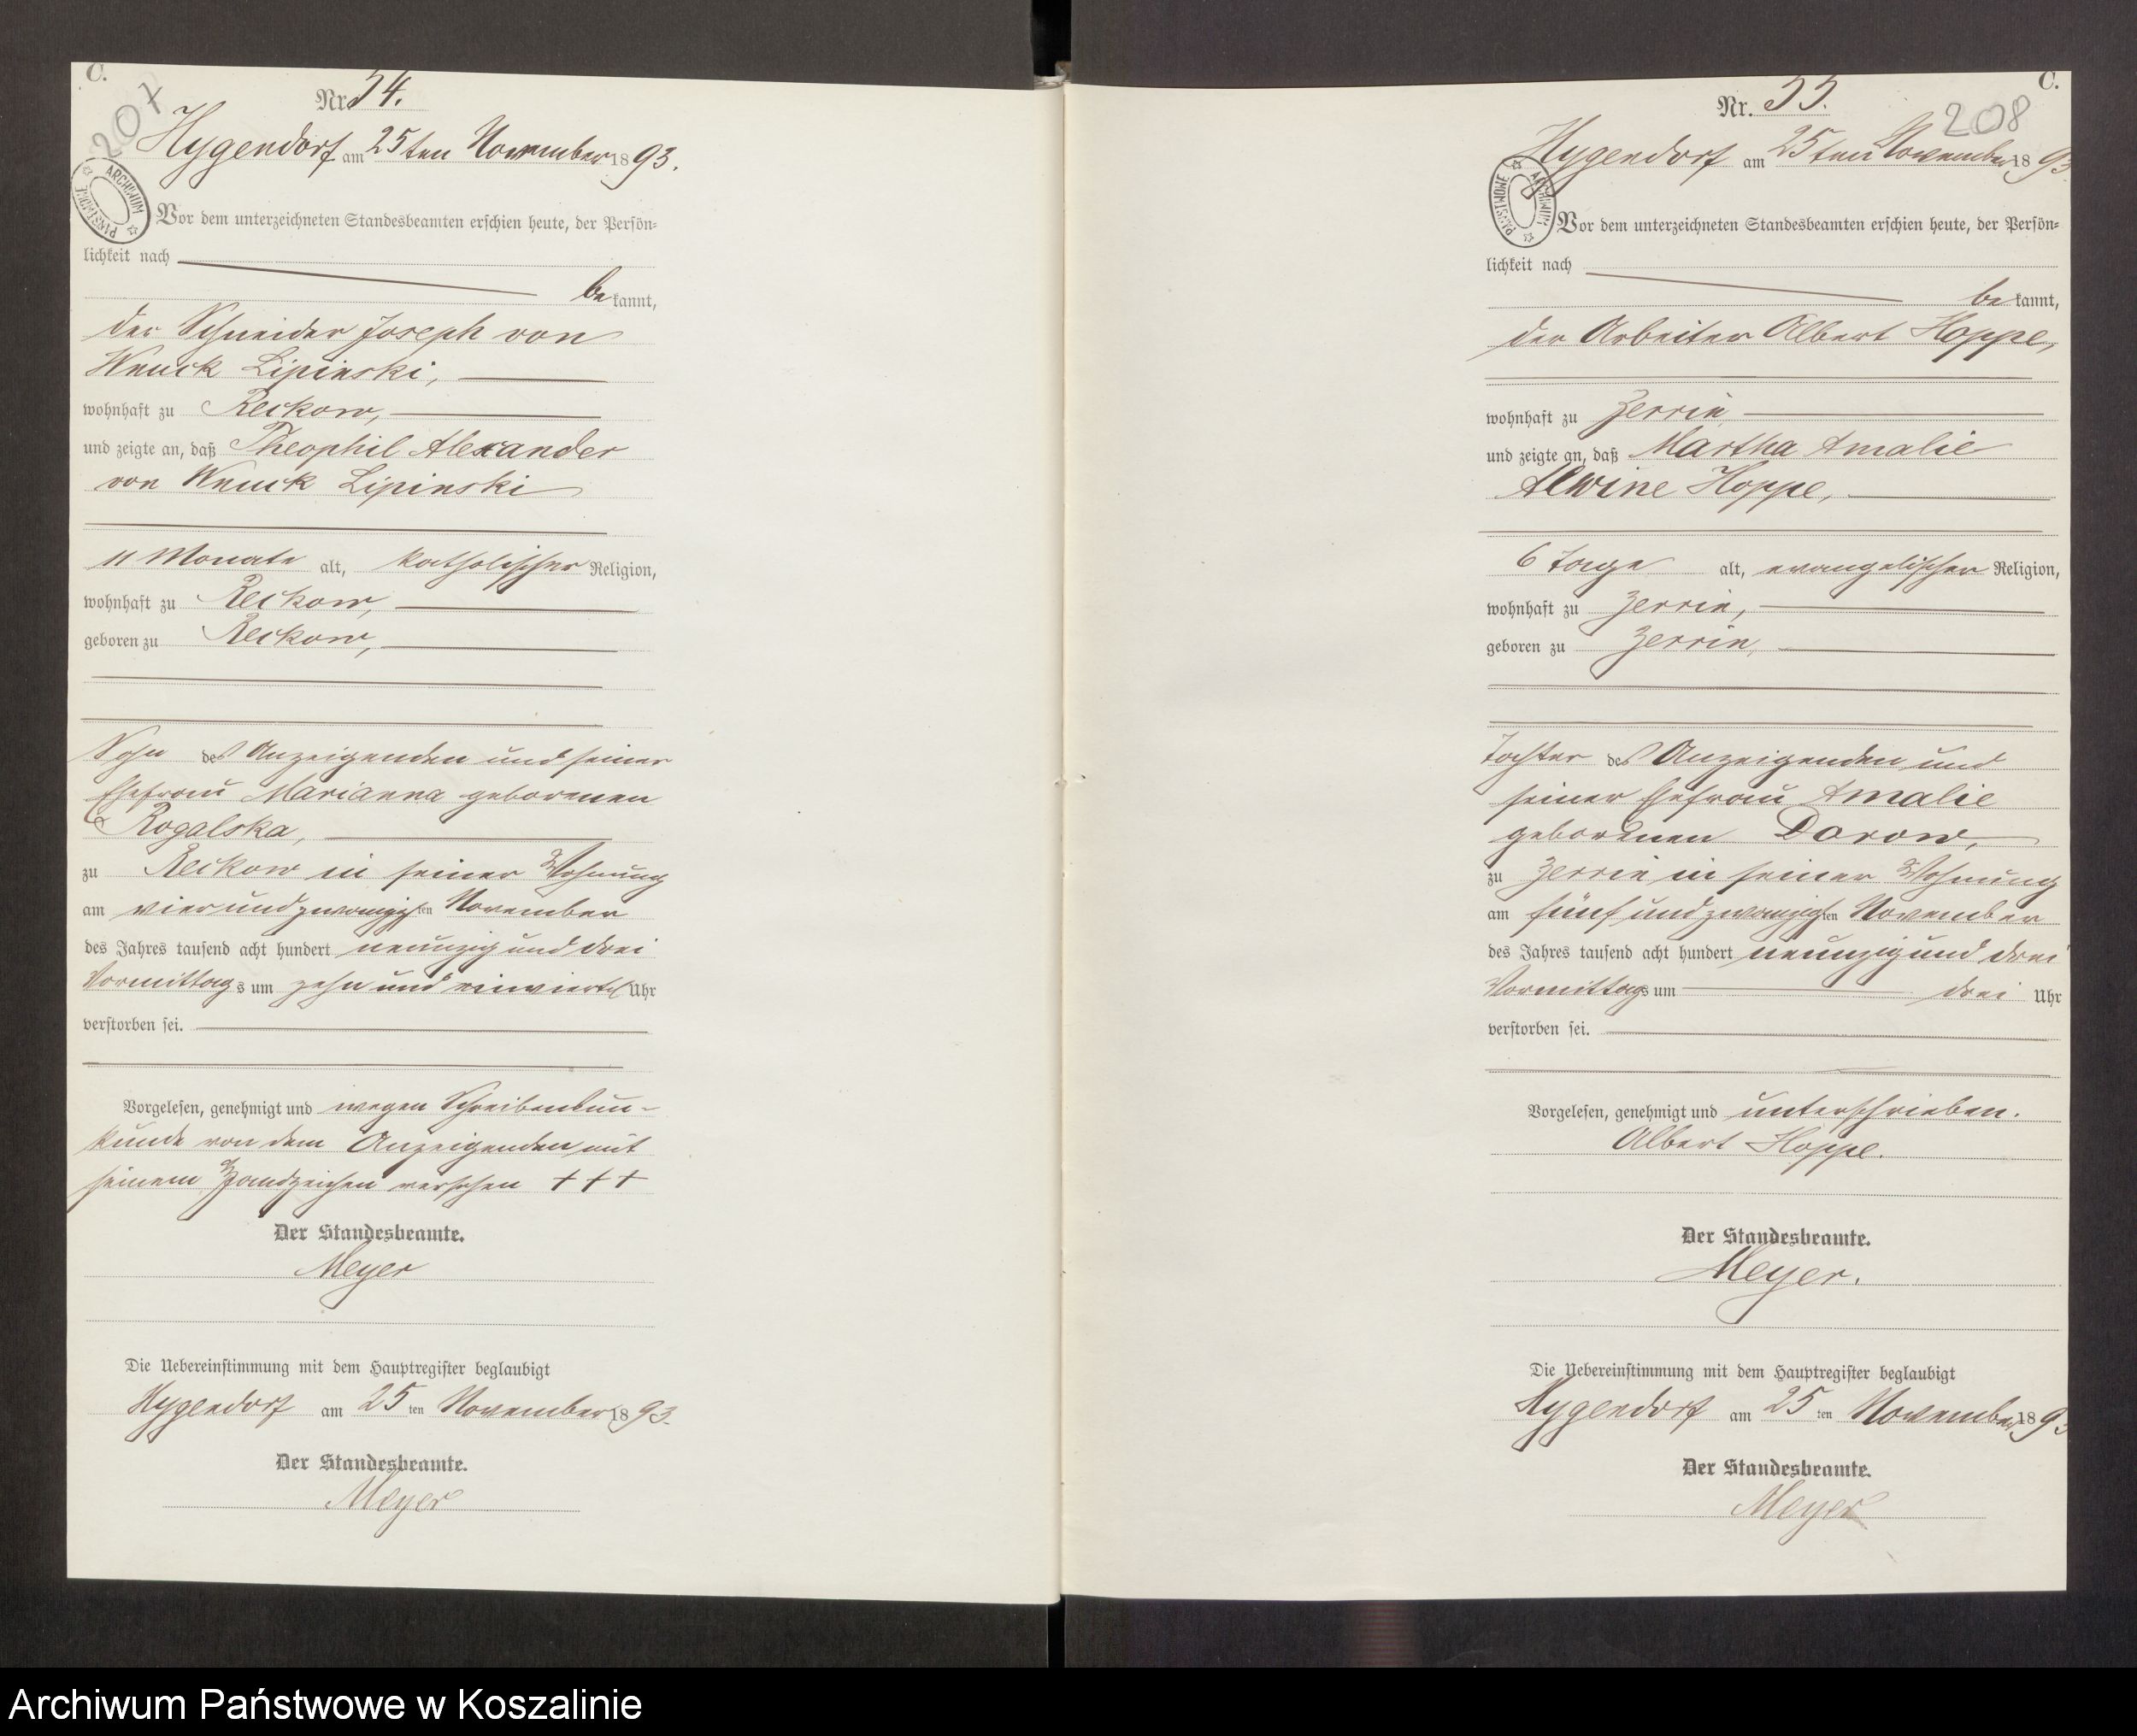 C.
207
Nr. 54.
Hygendorf am 25ten November 1893.
ARCHIWUM PAŃSTWOWE
Vor dem unterzeichneten Standesbeamten erschien heute, der Persön-
lichkeit nach
bekannt,
der Schneider Joseph von
Wnuck Lipinski,
wohnhaft zu Reckow,
und zeigte an, daß Theophil Alexander
von Wnuck Lipinski
11 Monate alt, katholischer Religion,
wohnhaft zu Reckow,
geboren zu Reckow,
Sohn des Anzeigenden und seiner
Ehefrau Marianna geborenen
Rogalska,
zu Reckow in seiner Wohnung
am vierundzwanzigsten November
des Jahres tausend acht hundert neunzig und drei
Vormittags um zehn und einviertel Uhr
verstorben sei.
Vorgelesen, genehmigt und wegen Schreibensun-
kunde von dem Anzeigenden mit
seinem Handzeichen versehen +++
Der Standesbeamte.
Meyer
Die Uebereinstimmung mit dem Hauptregister beglaubigt
Hygendorf am 25ten November 1893.
Der Standesbeamte.
Meyer
C.
208
Nr. 55.
Hygendorf am 25ten November 1893
ARCHIWUM PAŃSTWOWE
Vor dem unterzeichneten Standesbeamten erschien heute, der Persön-
lichkeit nach
bekannt,
der Arbeiter Albert Hoppe,
wohnhaft zu Zerrin
und zeigte an, daß Martha Amalie
Alwine Hoppe,
6 Tage alt, evangelischer Religion,
wohnhaft zu Zerrin,
geboren zu Zerrin,
Tochter des Anzeigenden und
seiner Ehefrau Amalie
geborenen Dorow,
zu Zerrin in seiner Wohnung
am fünfundzwanzigsten November
des Jahres tausend acht hundert neunzig und drei
Vormittags um drei Uhr
verstorben sei.
Vorgelesen, genehmigt und unterschrieben.
Albert Hoppe.
Der Standesbeamte.
Meyer.
Die Uebereinstimmung mit dem Hauptregister beglaubigt
Hygendorf am 25ten November 1893
Der Standesbeamte.
Meyer
Archiwum Państwowe w Koszalinie